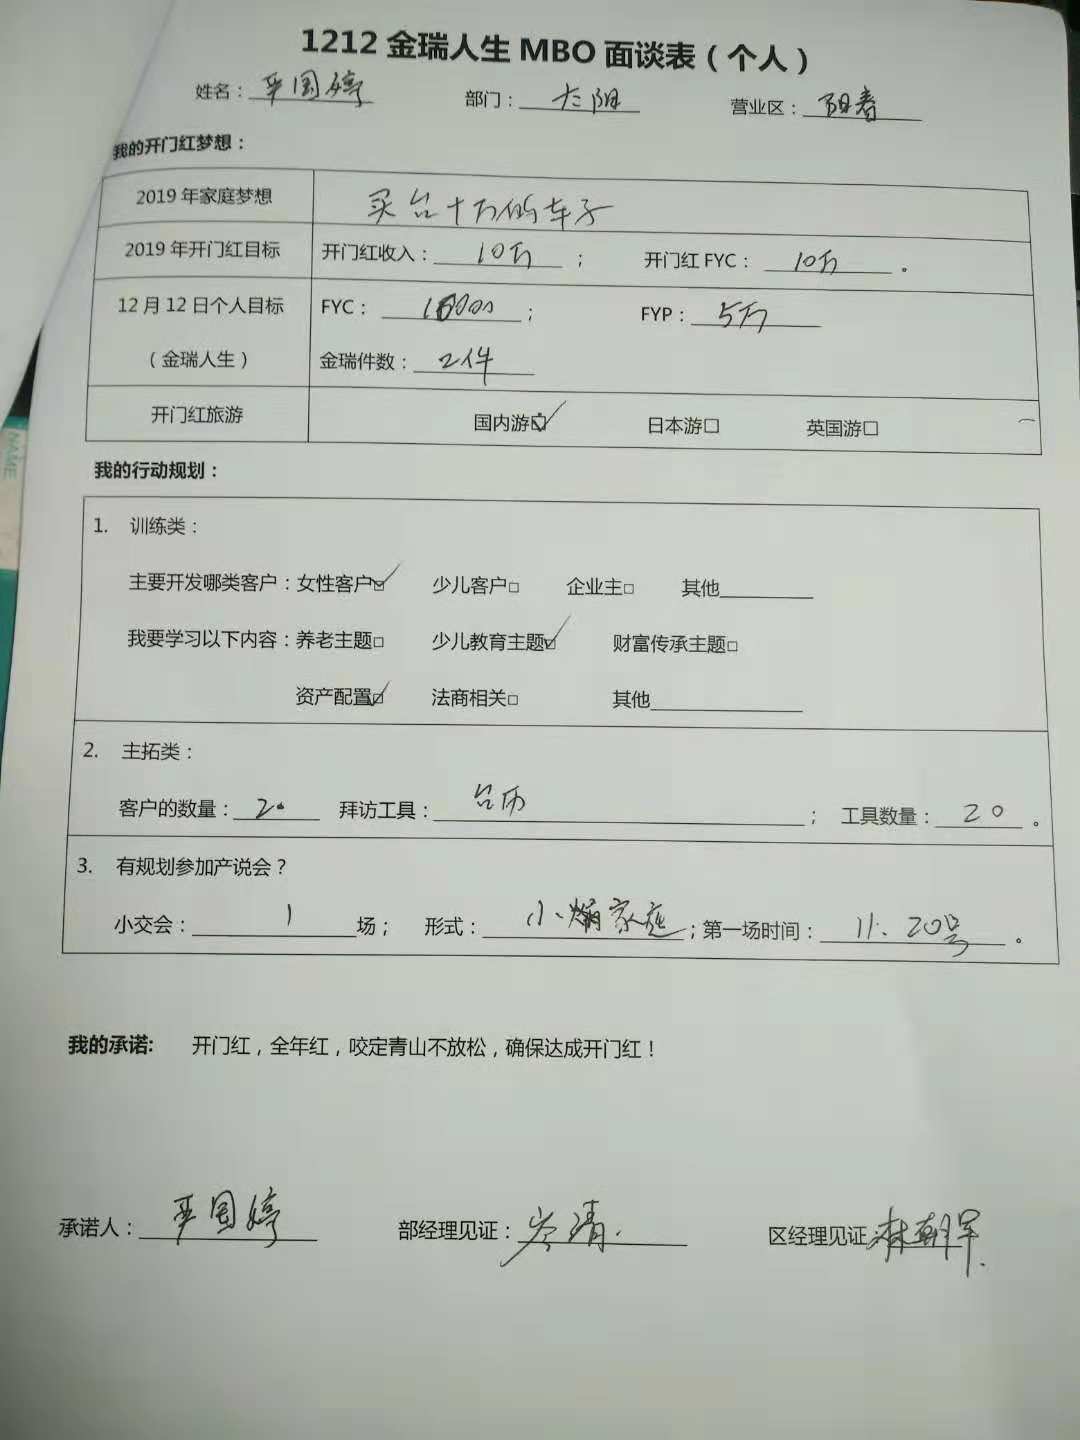 1212 金瑞人生 MBO 面谈表（个人）
姓名：严国婷 部门：太阳 营业区：阳春
我的开门红梦想：
2019 年家庭梦想 买台十万的车子
2019 年开门红目标 开门红收入：10万； 开门红 FYC：10万。
12 月 12 日个人目标 FYC： ； FYP：5万
（金瑞人生） 金瑞件数：2件
开门红旅游 国内游☑ 日本游□ 英国游□
我的行动规划：
1. 训练类：
主要开发哪类客户：女性客户☑ 少儿客户□ 企业主□ 其他
我要学习以下内容：养老主题□ 少儿教育主题☑ 财富传承主题□
资产配置☑ 法商相关□ 其他
2. 主拓类：
客户的数量：20 拜访工具：台历； 工具数量：20。
3. 有规划参加产说会？
小交会：1场； 形式：小 家庭；第一场时间：11. 20号。
我的承诺: 开门红，全年红，咬定青山不放松，确保达成开门红！
承诺人：严国婷 部经理见证：岑清. 区经理见证 林朝军.
NAME